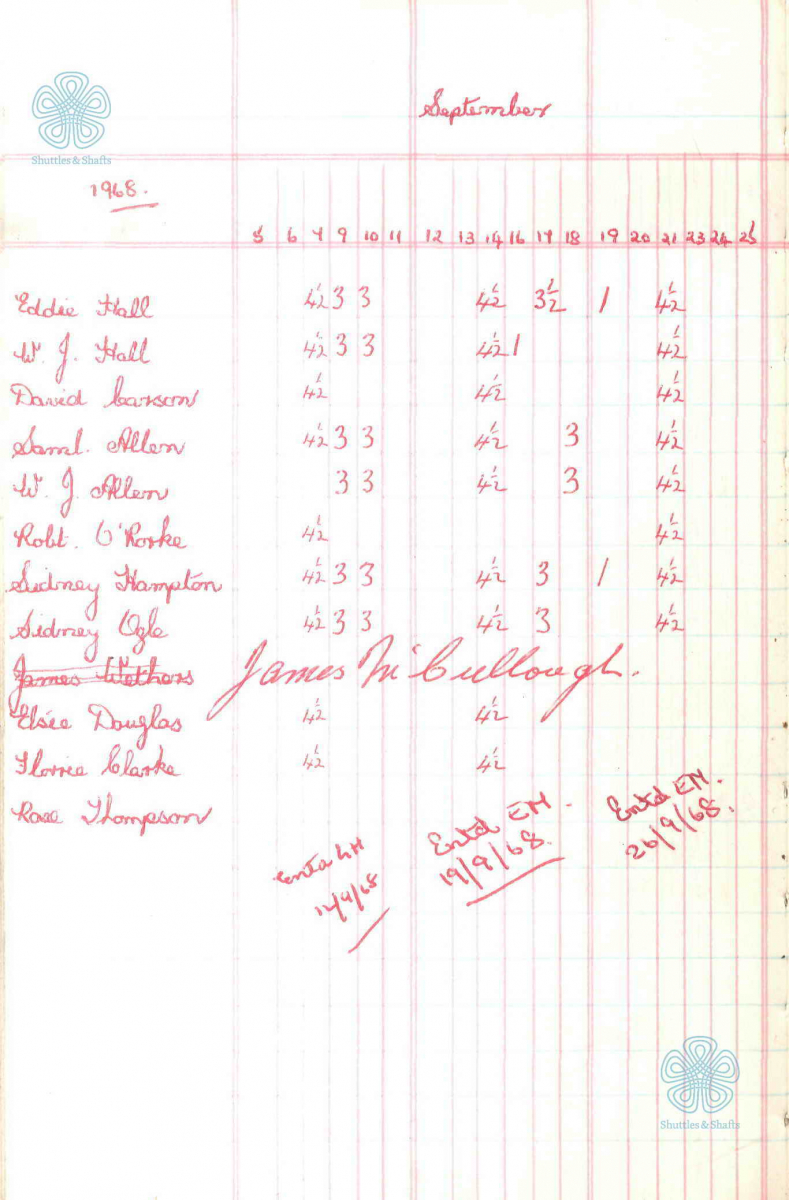 September
Shuttles & Shafts
1968.
5 6 7 9 10 11 12 13 14 16 17 18 19 20 21 23 24 25
Eddie Hall 4½ 3 3 4½ 3½ 1 4½
W. J. Hall 4½ 3 3 4½ 1 4½
David Carson 4½ 4½ 4½
Saml. Allen 4½ 3 3 4½ 3 4½
W. J. Allen 3 3 4½ 3 4½
Robt. O'Rorke 4½ 4½
Sidney Hampton 4½ 3 3 4½ 3 1 4½
Sidney Ogle 4½ 3 3 4½ 3 4½
James Wethers James McCullough.
Elsie Douglas 4½ 4½
Florrie Clarke 4½ 4½
Rose Thompson
Entd EM.
26/9/68.
Entd EM.
19/9/68.
12/9/68
Shuttles & Shafts